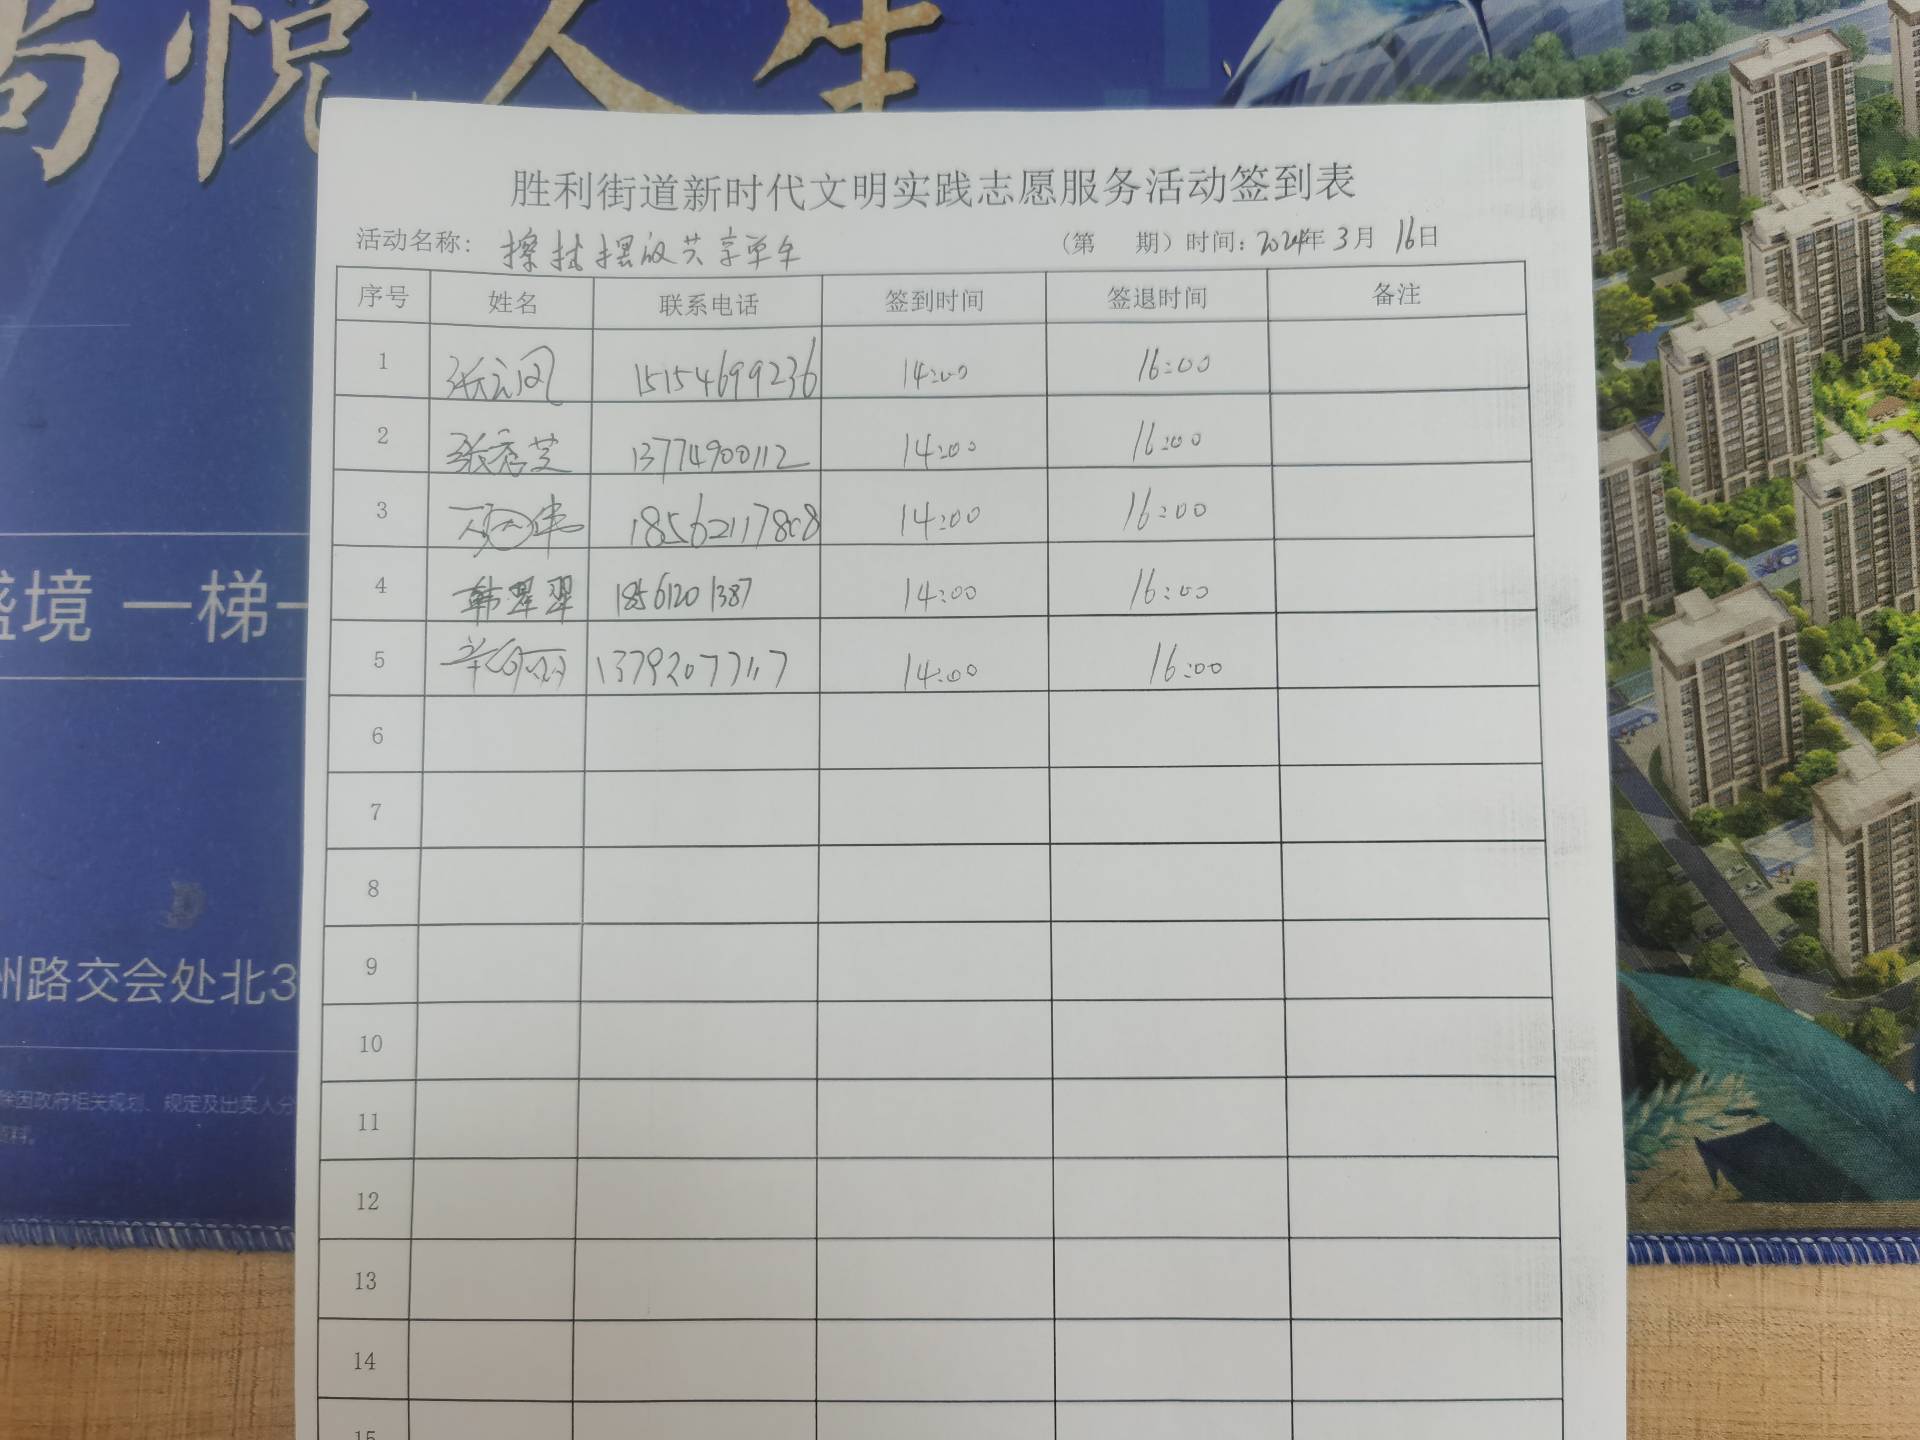 尚悦人生
胜利街道新时代文明实践志愿服务活动签到表
活动名称: 擦拭摆放共享单车 (第 期) 时间: 2024年 3月 16日
序号 姓名 联系电话 签到时间 签退时间 备注
1 张云凤 15154699236 14:00 16:00
2 张秀芝 13774900112 14:00 16:00
3 18562117808 14:00 16:00
4 韩翠翠 18561201387 14:00 16:00
5 13792077117 14:00 16:00
6
7
8
9
10
11
12
13
14
15
盛境 一梯一
州路交会处北3
除因政府相关规划、规定及出卖人分
资料。